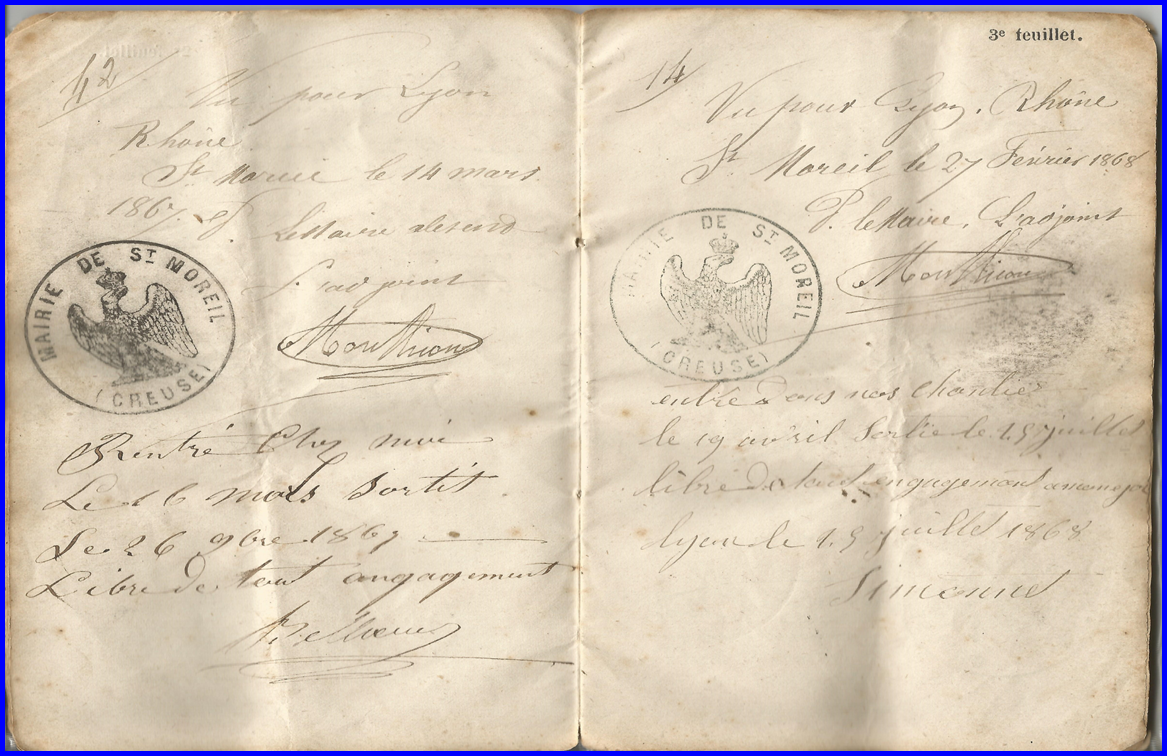 12
Vu pour Lyon
Rhône
St Moreil le 14 mars
1867
Le Maire absend
L'adjoint
MAIRIE DE ST MOREIL
(CREUSE)
Rentré Chez moi
Le 16 mars Sortit
Le 26 9bre 1867
Libre de tout angagement
3e feuillet.
14
Vu pour Lyon, Rhône
St Moreil le 27 Février 1868
P. le Maire, L'adjoint
MAIRIE DE ST MOREIL
(CREUSE)
entré dans nos chantier
le 19 avril Sortie le 15 juillet
libre de tout engagement
lyon le 15 juillet 1868
Simonnet